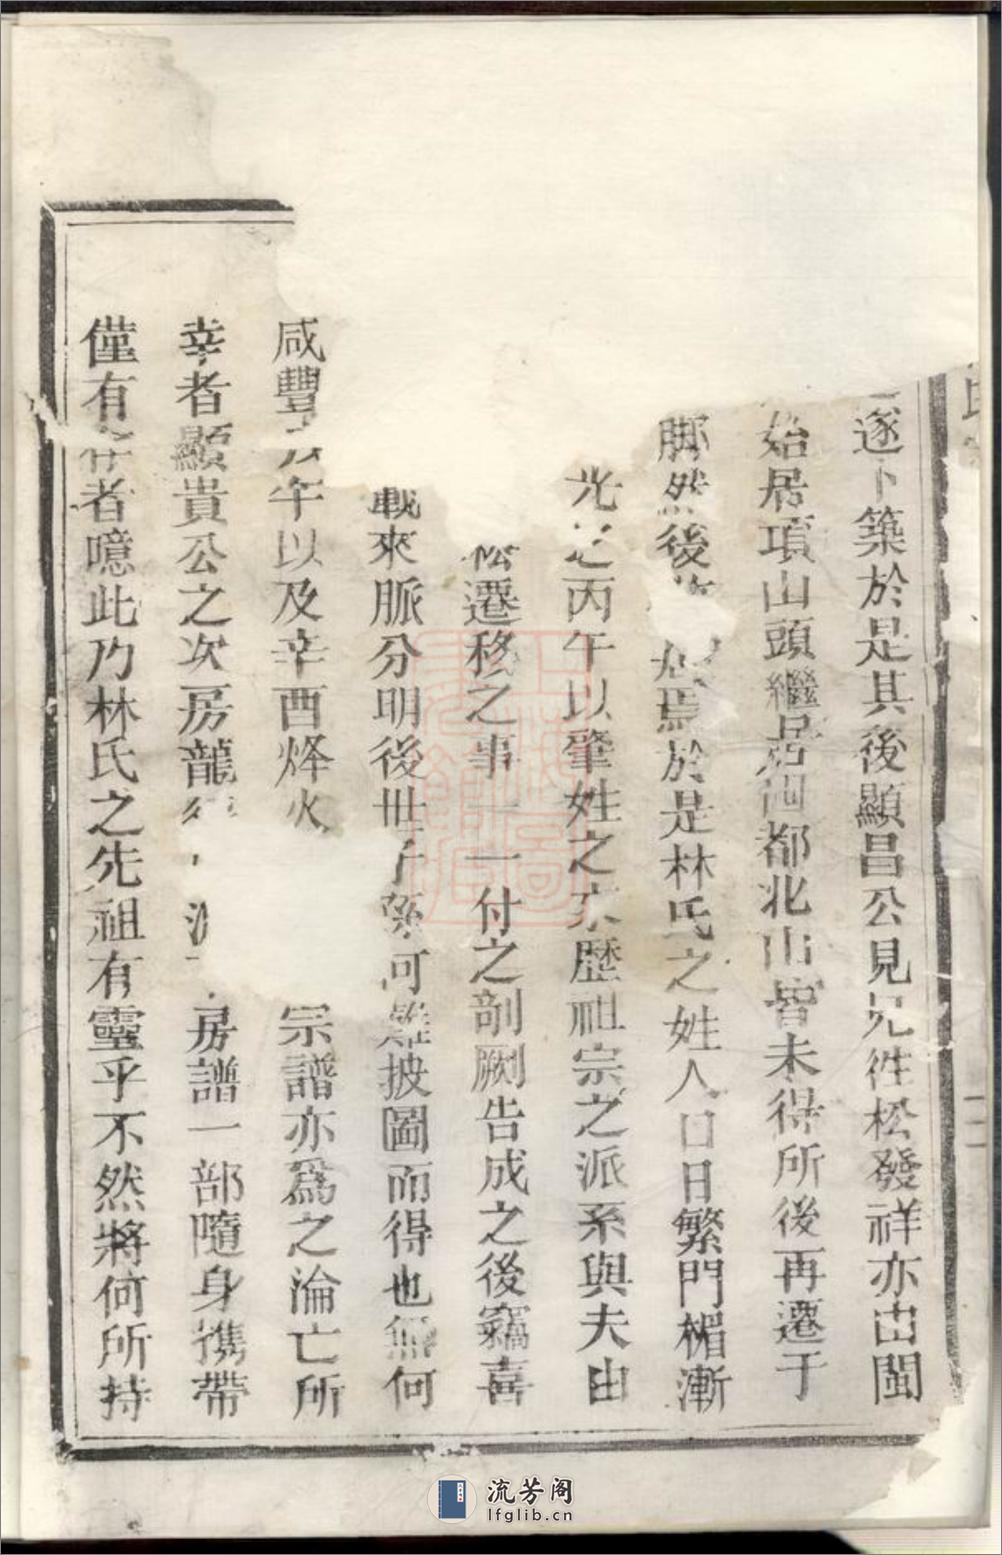 遂卜築於是其後顯昌公見兄徃松發祥亦由閩
始居項山頭繼居四都北山皆未得所後再遷于
脚然後居焉於是林氏之姓人口日繁門楣漸
光之丙午以肇姓之來歷祖宗之派系與夫由
松遷移之事一一付之剞劂告成之後竊喜
載來脈分明後世子孫可雖披圖而得也無何
咸豐午以及辛酉烽火宗譜亦爲之淪亡所
幸者顯貴公之次房龍房譜一部隨身携帶
僅有存者噫此乃林氏之先祖有靈乎不然將何所持
流芳阁
lfglib.cn